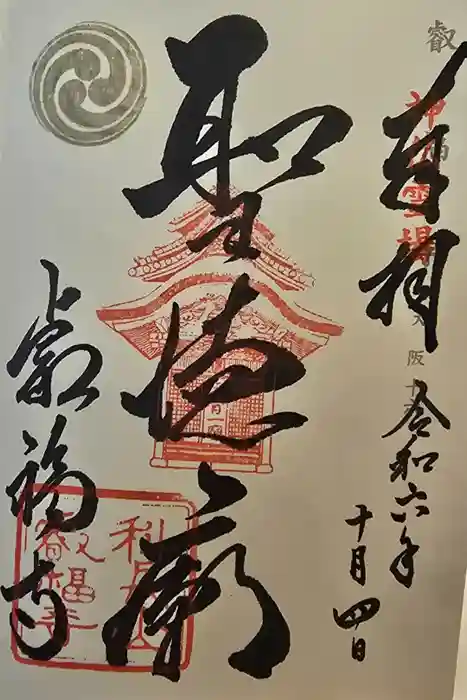 奉拝
神佛霊場
叡福
大阪十
令和六年
十月四日
聖徳廟
叡福寺
叡福寺